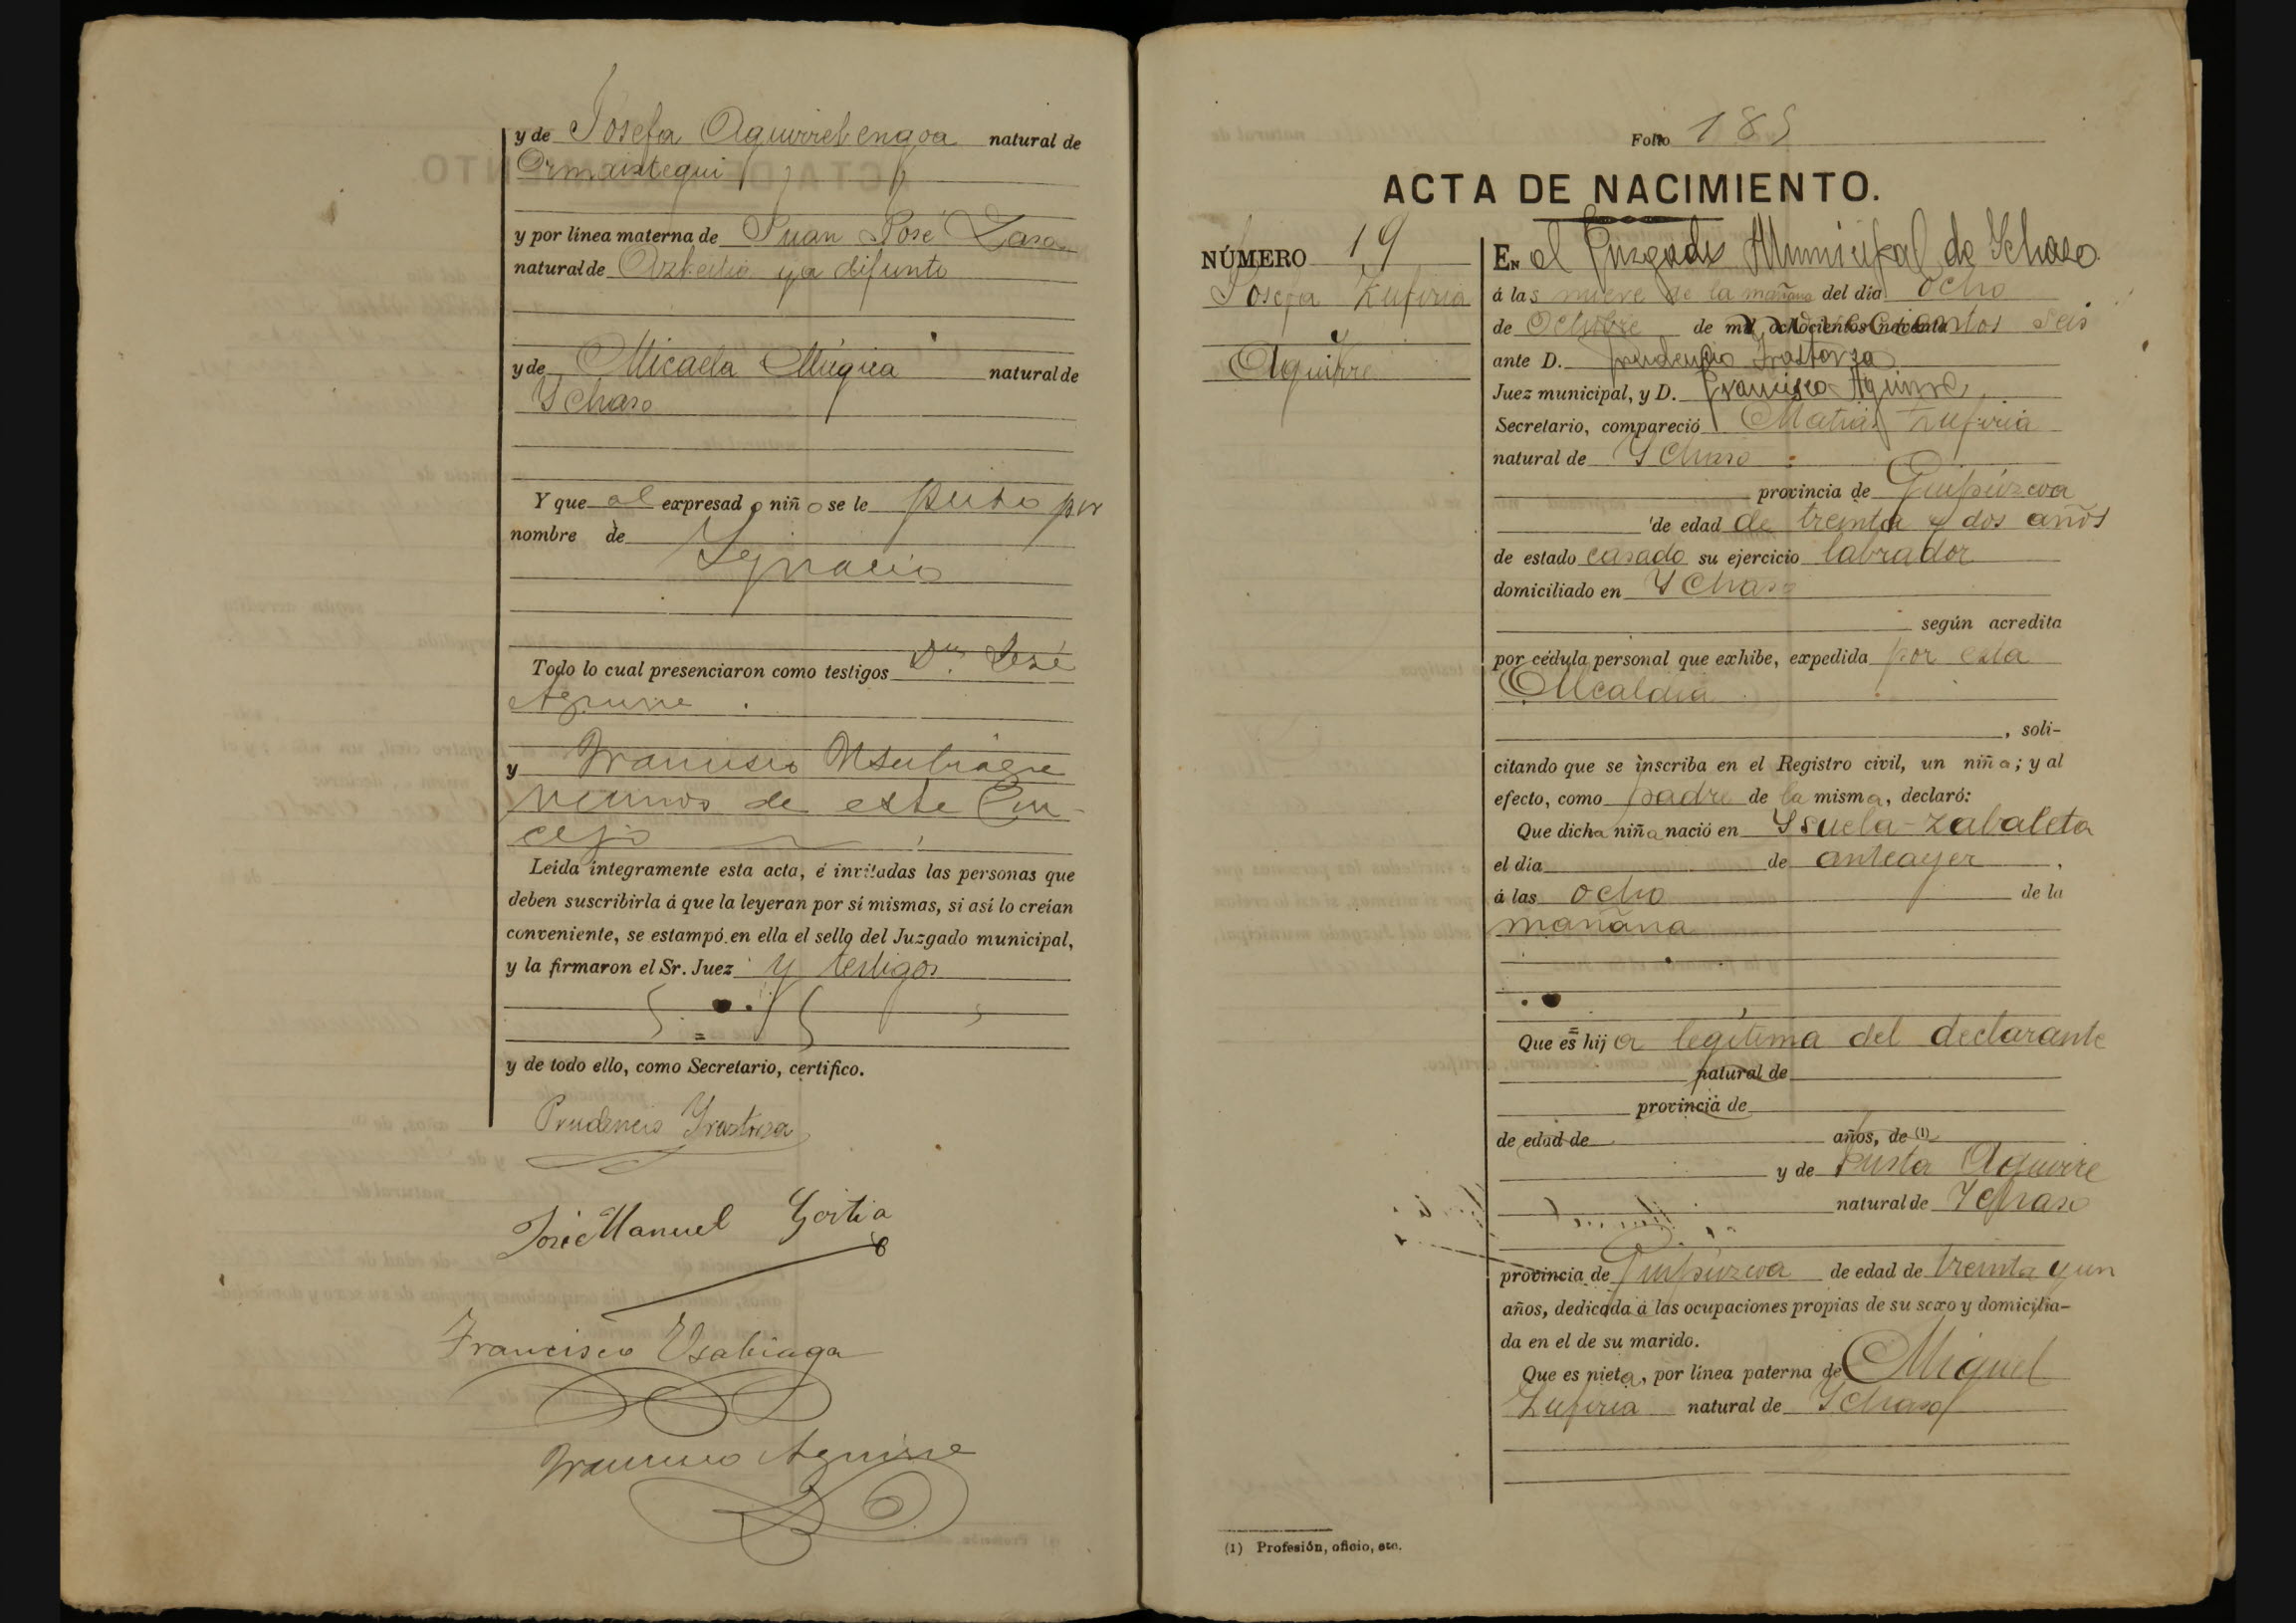 y de Josefa Aguirrebengoa natural de
Ormaiztegui
y por línea materna de Juan José Lasa
natural de Azkeitia ya difunto
y de Micaela Múgica natural de
Ychaso
Y que al expresado niño se le puso por
nombre de
Ygnacio
Todo lo cual presenciaron como testigos Dn. José
Aguirre
y Francisco Usabiaga
vecinos de este Con-
cejo
Leída íntegramente esta acta, é invitadas las personas que
deben suscribirla á que la leyeran por sí mismas, si así lo creían
conveniente, se estampó en ella el sello del Juzgado municipal,
y la firmaron el Sr. Juez y testigos
y de todo ello, como Secretario, certifico.
Prudencio Yrastorza
José Manuel Goitia
Francisco Usabiaga
Francisco Aguirre
Folio 185
ACTA DE NACIMIENTO.
NÚMERO 19
Josefa Zufiria
y
Aguirre
EN el Juzgado Municipal de Ychaso
á las nueve de la mañana del día ocho
de Octubre de mil novecientos seis
ante D. Prudencio Yrastorza
Juez municipal, y D. Francisco Aguirre
Secretario, compareció Matias Zufiria
natural de Ychaso
provincia de Guipúzcoa
de edad de treinta y dos años
de estado casado su ejercicio labrador
domiciliado en Ychaso
según acredita
por cédula personal que exhibe, expedida por esta
Alcaldia
, soli-
citando que se inscriba en el Registro civil, un niña; y al
efecto, como padre de la misma, declaró:
Que dicha niña nació en Ysuela-zabaleta
el día de anteayer,
á las ocho de la
mañana
Que es hija legítima del declarante
natural de
provincia de
de edad de años, de (1)
y de Justa Aguirre
natural de Ychaso
provincia de Guipúzcoa de edad de treinta y un
años, dedicada á las ocupaciones propias de su sexo y domicilia-
da en el de su marido.
Que es nieta, por línea paterna de Miguel
Zufiria natural de Ychaso
(1) Profesión, oficio, etc.